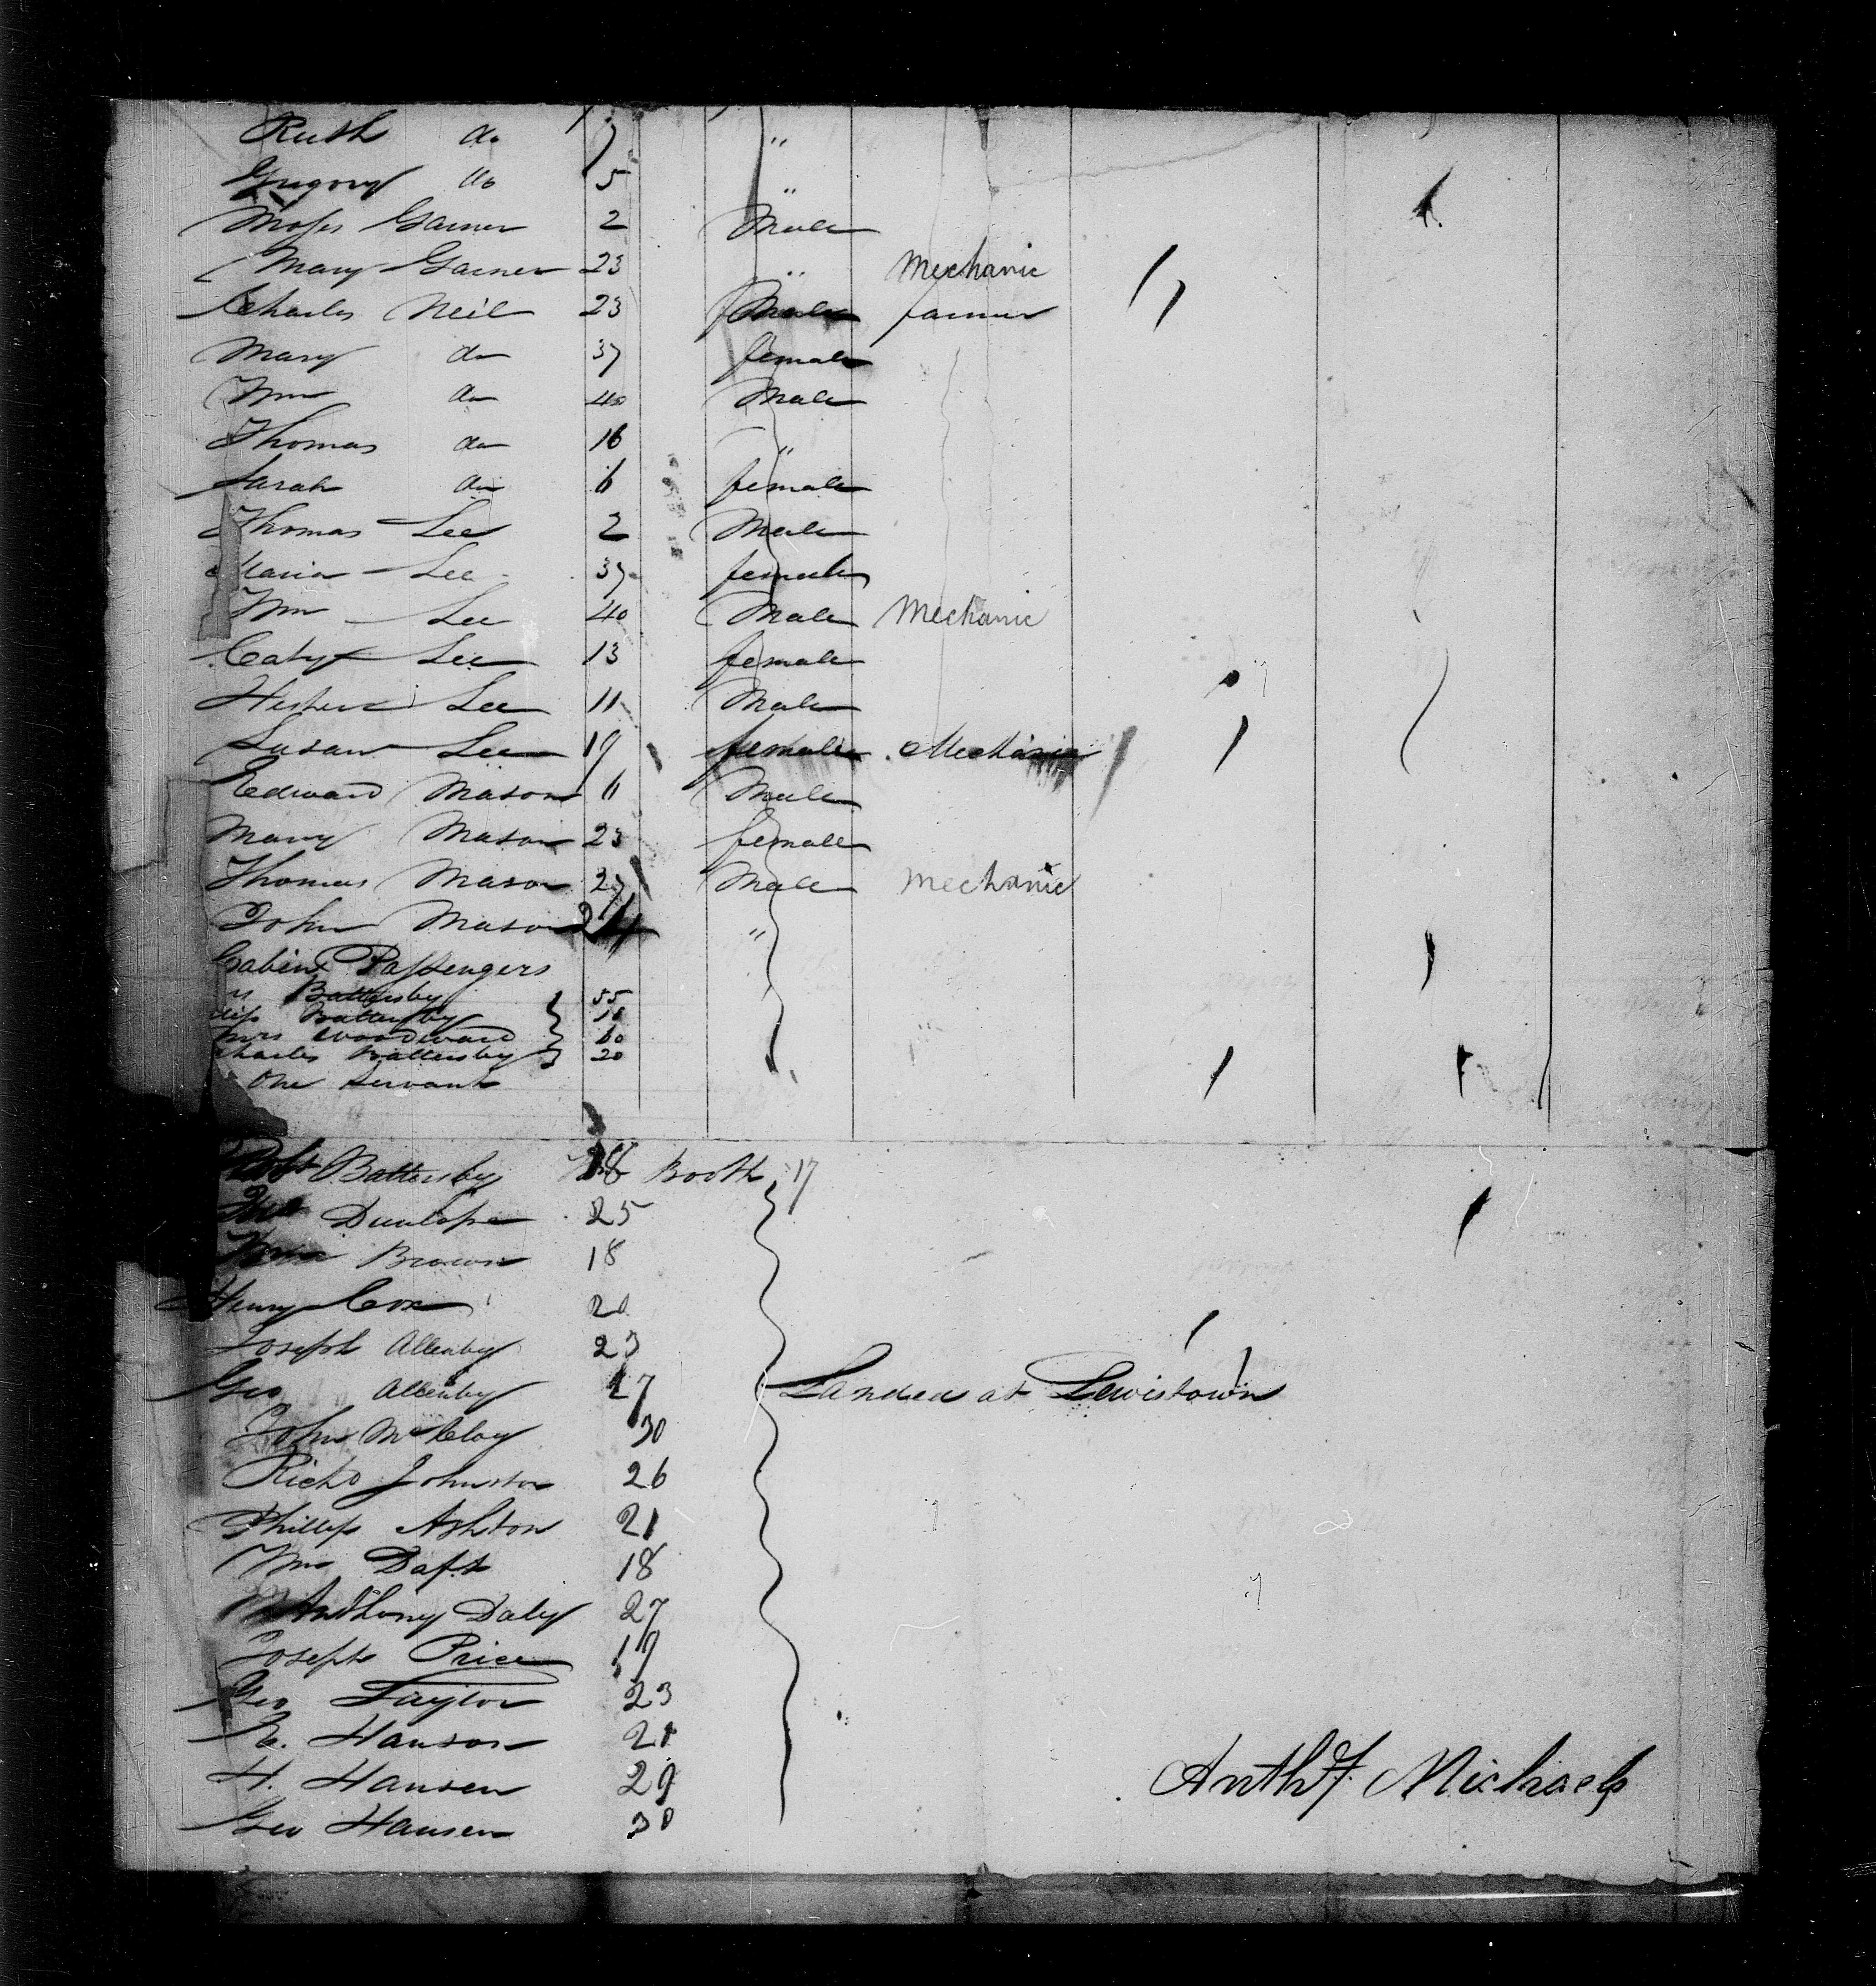 Ruth do 7 "
Gregory do 5 "
Moses Garner 2 Male
Mary Garner 23 " Mechanic
Charles Neil 23 Male farmer
Mary do 37 female
Wm do 40 Male
Thomas do 16 "
Sarah do 6 female
Thomas Lee 2 Male
Maria Lee 37 female
Wm Lee 40 Male Mechanic
Caty Lee 13 female
Lee 11 Male
Susan Lee 19 female Mechanic
Edward Mason 11 Male
Mary Mason 23 female
Thomas Mason 27 Male Mechanic
John Mason 24 "
Cabin Passengers
Battersby 55
Battersby 18
Mrs Woodward 60
Charles Battersby 20
One Servant
Robt Battersby 18 Booth 17
Dunlope 25
Brown 18
Henry Cox 20
Joseph Allenby 23
Geo Allenby 27 Landed at Lewistown
John McCloy 30
Richd Johnston 26
Phillip Ashton 21
Wm Daft 18
Anthony Daly 27
Joseph Price 19
Geo Taylor 23
N. Hanson 21
H. Hansen 29
Geo Hansen 30
Anthy Michaels